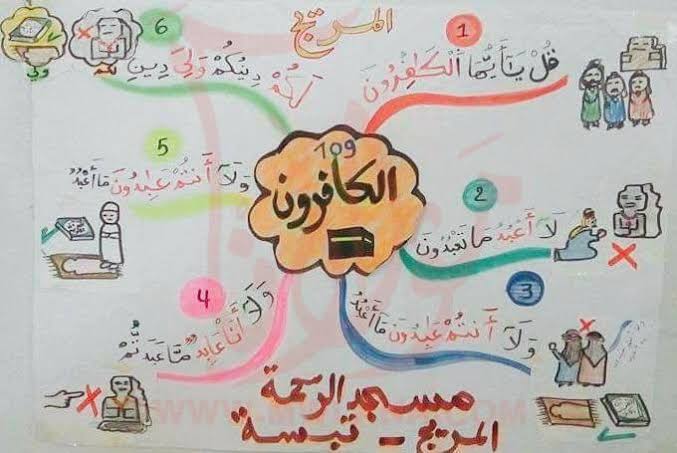 المريج
1
قُلْ يَٰٓأَيُّهَا ٱلْكَٰفِرُونَ
2
لَآ أَعْبُدُ مَا تَعْبُدُونَ
3
وَلَآ أَنتُمْ عَٰبِدُونَ مَآ أَعْبُدُ
4
وَلَآ أَنَا۠ عَابِدٌ مَّا عَبَدتُّمْ
5
وَلَآ أَنتُمْ عَٰبِدُونَ مَآ أَعْبُدُ
6
لَكُمْ دِينُكُمْ وَلِىَ دِينِ
لكم
ولي
109
الكافرون
مسجد الرحمة
المريج - تبسة